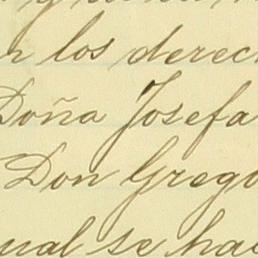 los derec
Doña Josefa
Don Grego
ual se hac